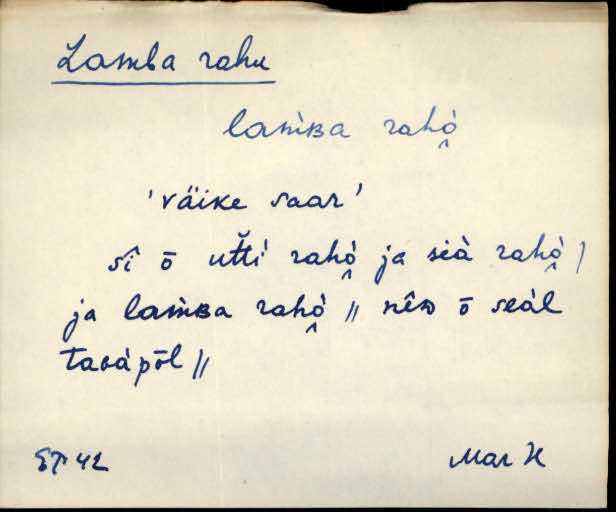 Lamba rahu
lam̀ʙa rahò̭
'väike saar'
sî ō ut̆ti rahò̭ ja sià rahò̭ /
ja lam̀ʙa rahò̭ // nêᴅ ō seàl
taɢàpōl //
ET 42 Mar H